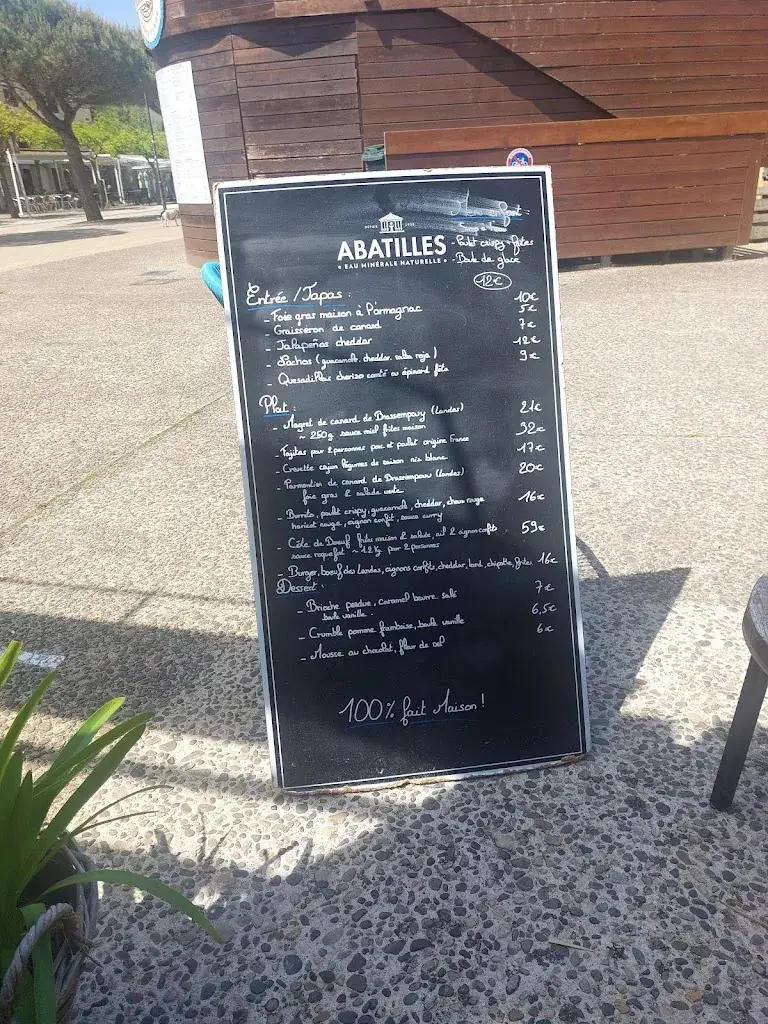 DEPUIS 1925
ABATILLES
• EAU MINÉRALE NATURELLE •
Menu enfant
Sirop à l'eau
- Poulet crispy + frites
- Boule de glace
12€
Entrée / Tapas :
- Foie gras maison à l'Armagnac 10€
- Graisseron de canard 5€
- Jalapeños cheddar 7€
- Nachos (guacamole, cheddar, salsa roja) 12€
- Quesadillas chorizo comté ou épinard feta 9€
Plat :
- Magret de canard de Brassempouy (Landes) 21€
~ 250g sauce miel frites maison
- Fajitas pour 2 personnes porc et poulet origine France 32€
- Crevette cajun légumes de saison riz blanc 17€
- Parmentier de canard de Brassempouy (Landes) 20€
foie gras & salade verte
- Burrito, poulet crispy, guacamole, cheddar, choux rouge 16€
haricot rouge, oignon confit, sauce curry
- Côte de Boeuf frites maison & salade, ail & oignon confits 59€
sauce roquefort ~ 1.2 Kg pour 2 personnes
- Burger, boeuf des Landes, oignons confits, cheddar, lard, chipotle, frites 16€
Dessert :
- Brioche perdue, caramel beurre salé 7€
boule vanille
- Crumble pomme framboise, boule vanille 6,5€
- Mousse au chocolat, fleur de sel 6€
100% fait Maison !